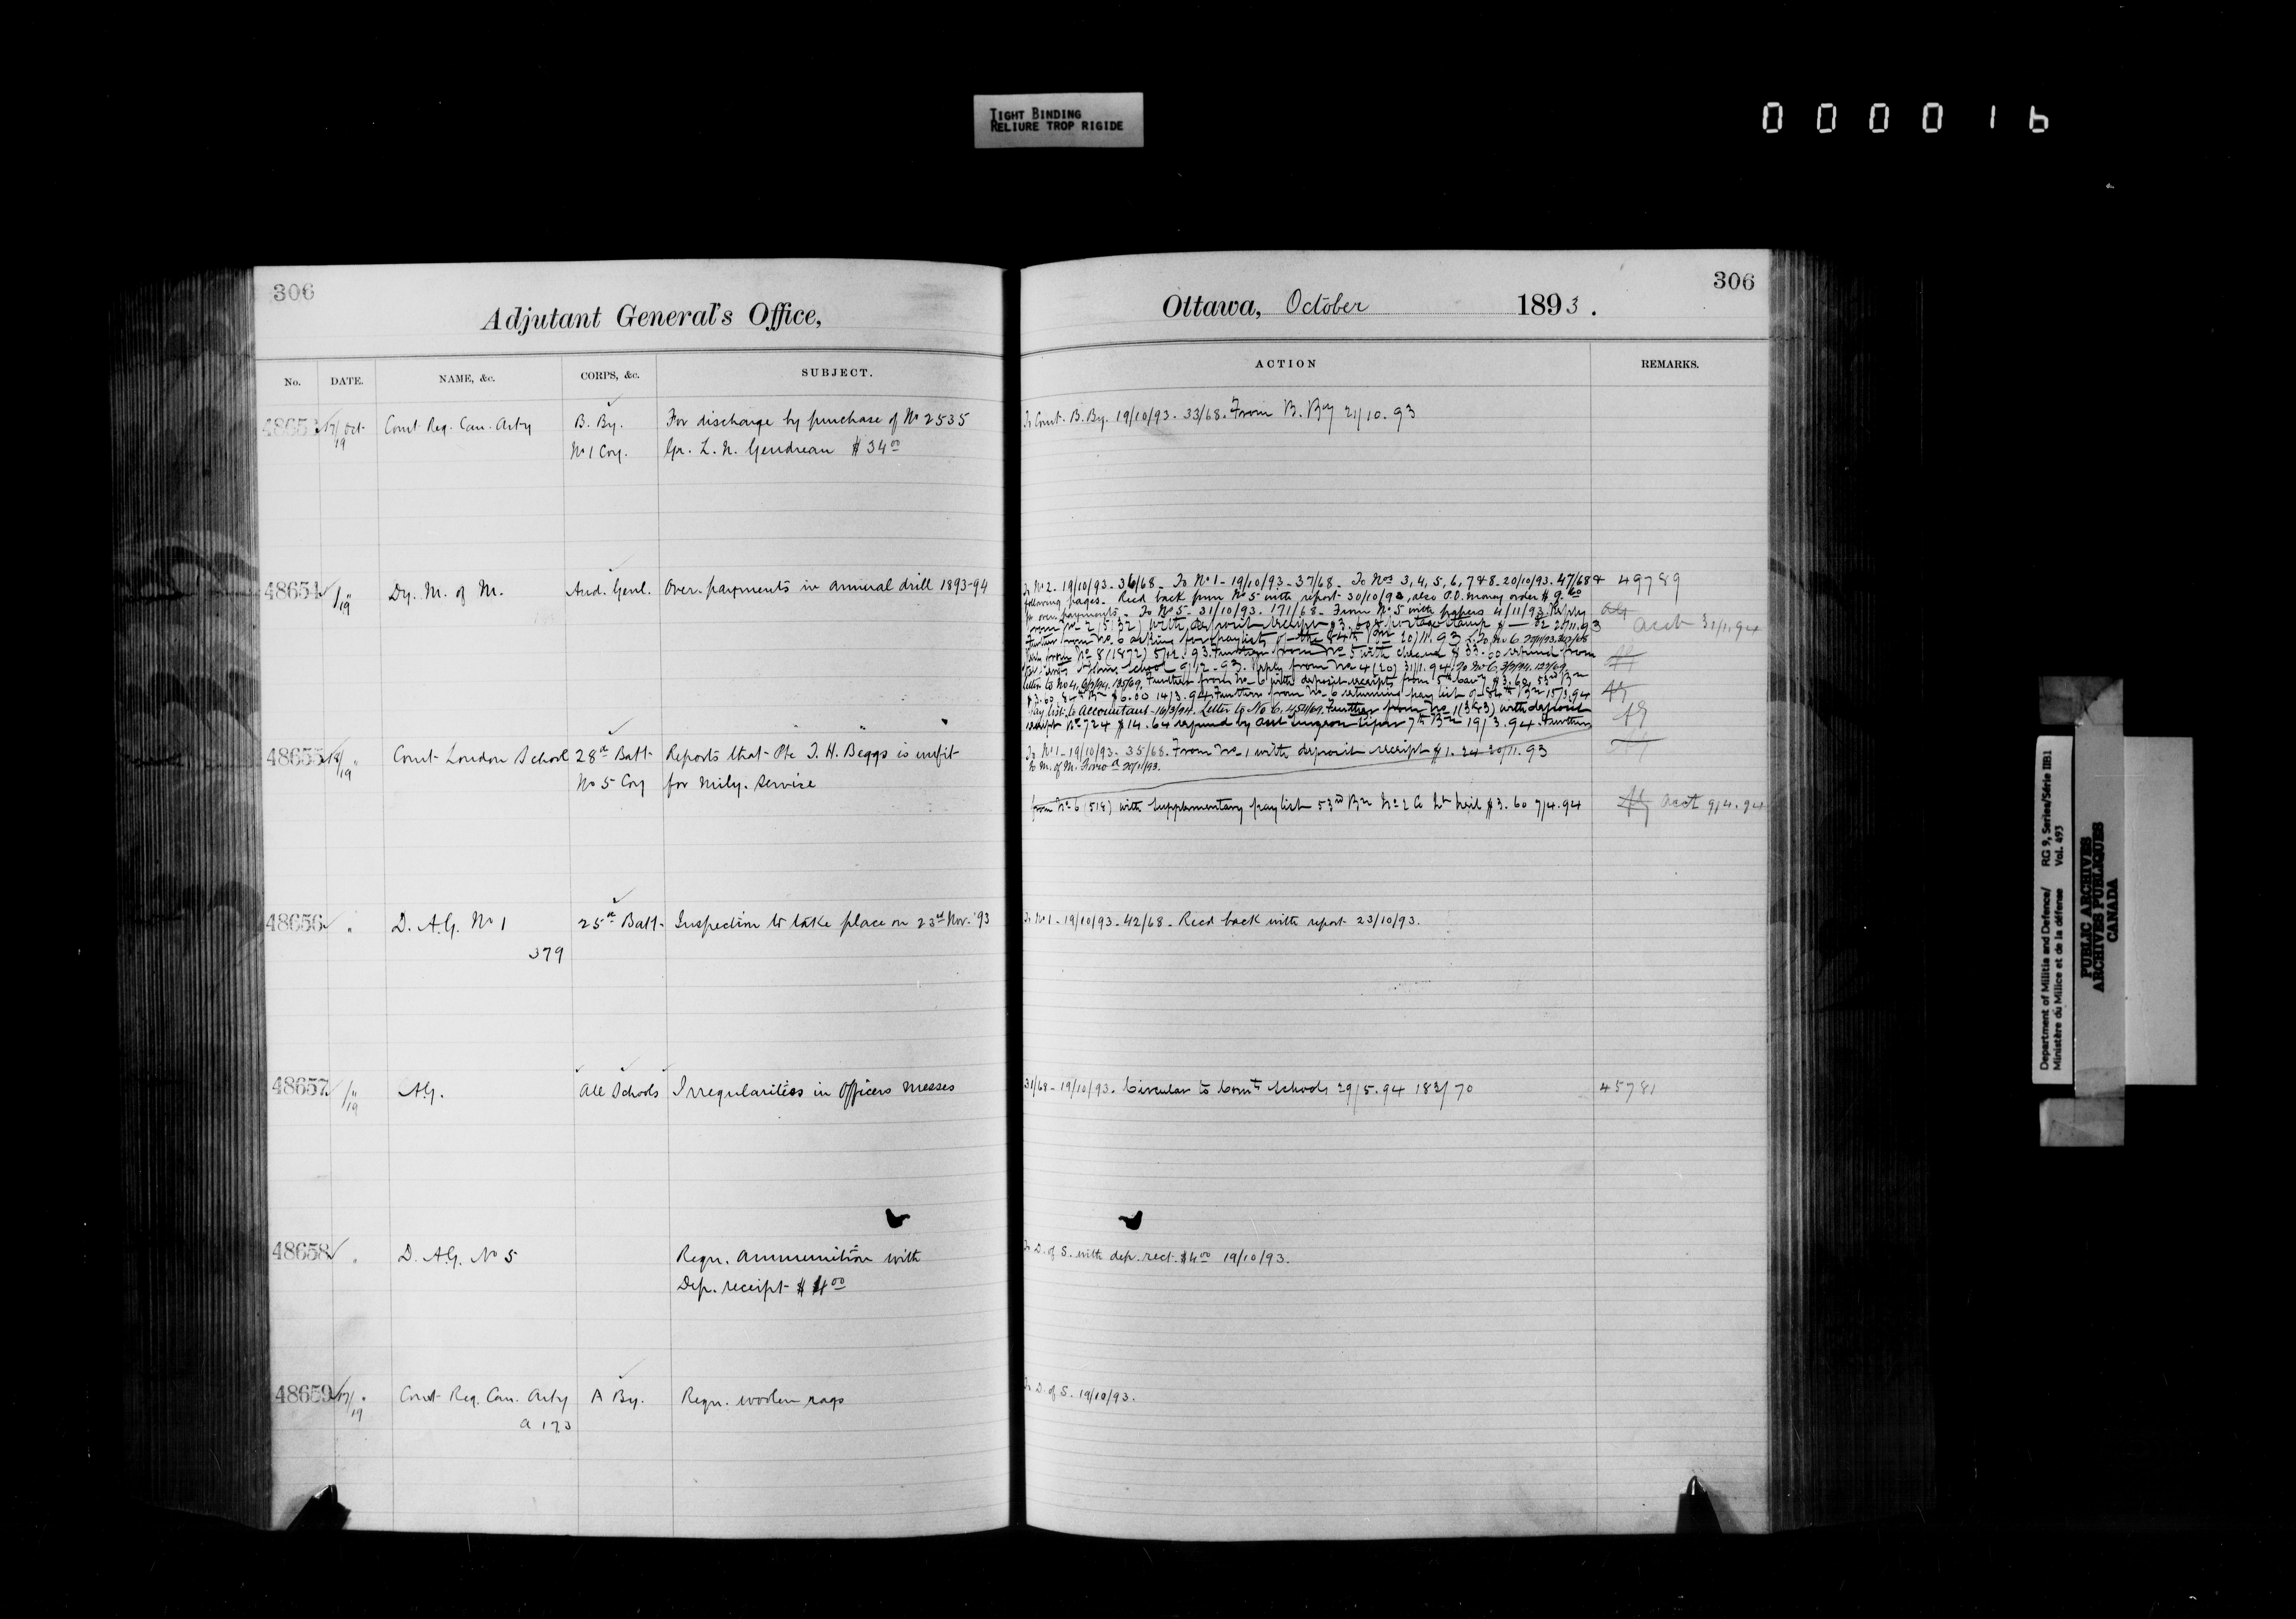 TIGHT BINDING
RELIURE TROP RIGIDE
000016
306
Adjutant General's Office,
No. DATE. NAME, &c. CORPS, &c. SUBJECT.
48653 17/19 Oct Comt Reg. Can. Arty B. By. For discharge by purchase of No 2535
No 1 Coy. Gr. L. N. Gendreau $34.00
48654 /19 " Dy. M. of M. Aud. Genl. Over-payments in annual drill 1893-94
48655 18/19 " Comt London School 28th Batt. Reports that Pte J. H. Beggs is unfit
No 5 Coy for Mily. Service
48656 " D. A.G. No 1 25th Batt. Inspection to take place on 23rd Nov. '93
379
48657 /19 " A.G. All Schools Irregularities in Officers Messes
48658 " D. A.G. No 5 Reqn. Ammunition with
Dep. receipt $4.00
48659 17/19 " Comt Reg. Can. Arty A By. Reqn. woolen rags
a 173
306
Ottawa, October 1893.
ACTION REMARKS.
To Comt. B. By. 19/10/93. 33/68. From B. By 21/10.93
To No 2. 19/10/93. 36/68. To No 1 - 19/10/93 - 37/68. To Nos 3, 4, 5, 6, 7 & 8 - 20/10/93. 47/68 & 49789
following pages. Recd back from No 5 with report 30/10/93, also P.O. money order $9.60
for over payments. To No 5 - 31/10/93. 171/68. From No 5 with papers 4/11/93. Reply
from No 2 (5132) with deposit receipt $3.60 & postage stamp 20/11.93 acct 31/1.94
Further from No 6 asking for paylists of the 84th Bn 20/11.93. To No 6.
from No 8 (1872) 5/12.93. Further from No 5 with cheque $33.00 refund from
School 9/12.93. Reply from No 4 (20) 31/1.94. To No 6. 3/2/94. 127/69.
letter to No 4. 6/2/94. 135/69. Further from No 6 with deposit receipts from 5th Cavy $3.60, 53rd Bn
$3.60, $6.00 14/3.94. Further from No 6 returning pay list of 84th Bn 15/3.94
Pay list to Accountant - 16/3/94. Letter to No 6. 451/69. Further from No 1 (343) with deposit
receipt No 724 $14.64 refund by asst Surgeon 7th Bn 19/3.94. Further
To No 1 - 19/10/93 - 35/68. From No 1 with deposit receipt $1.24 20/11.93
To M. of M. 20/11/93.
from No 6 (518) with supplementary paylist 53rd Bn No 2 Co Lt Neil $3.60 7/4.94 acct 9/4.94
To No 1 - 19/10/93 - 42/68 - Recd back with report 23/10/93.
31/68 - 19/10/93. Circular to Comts Schools 29/5.94 183/70 45781
To D. of S. with dep. rect. $4.00 19/10/93.
To D. of S. 19/10/93.
Department of Militia and Defence/ RG 9, Series/Série IIB1
Ministère du Milice et de la défense Vol. 493
PUBLIC ARCHIVES
ARCHIVES PUBLIQUES
CANADA